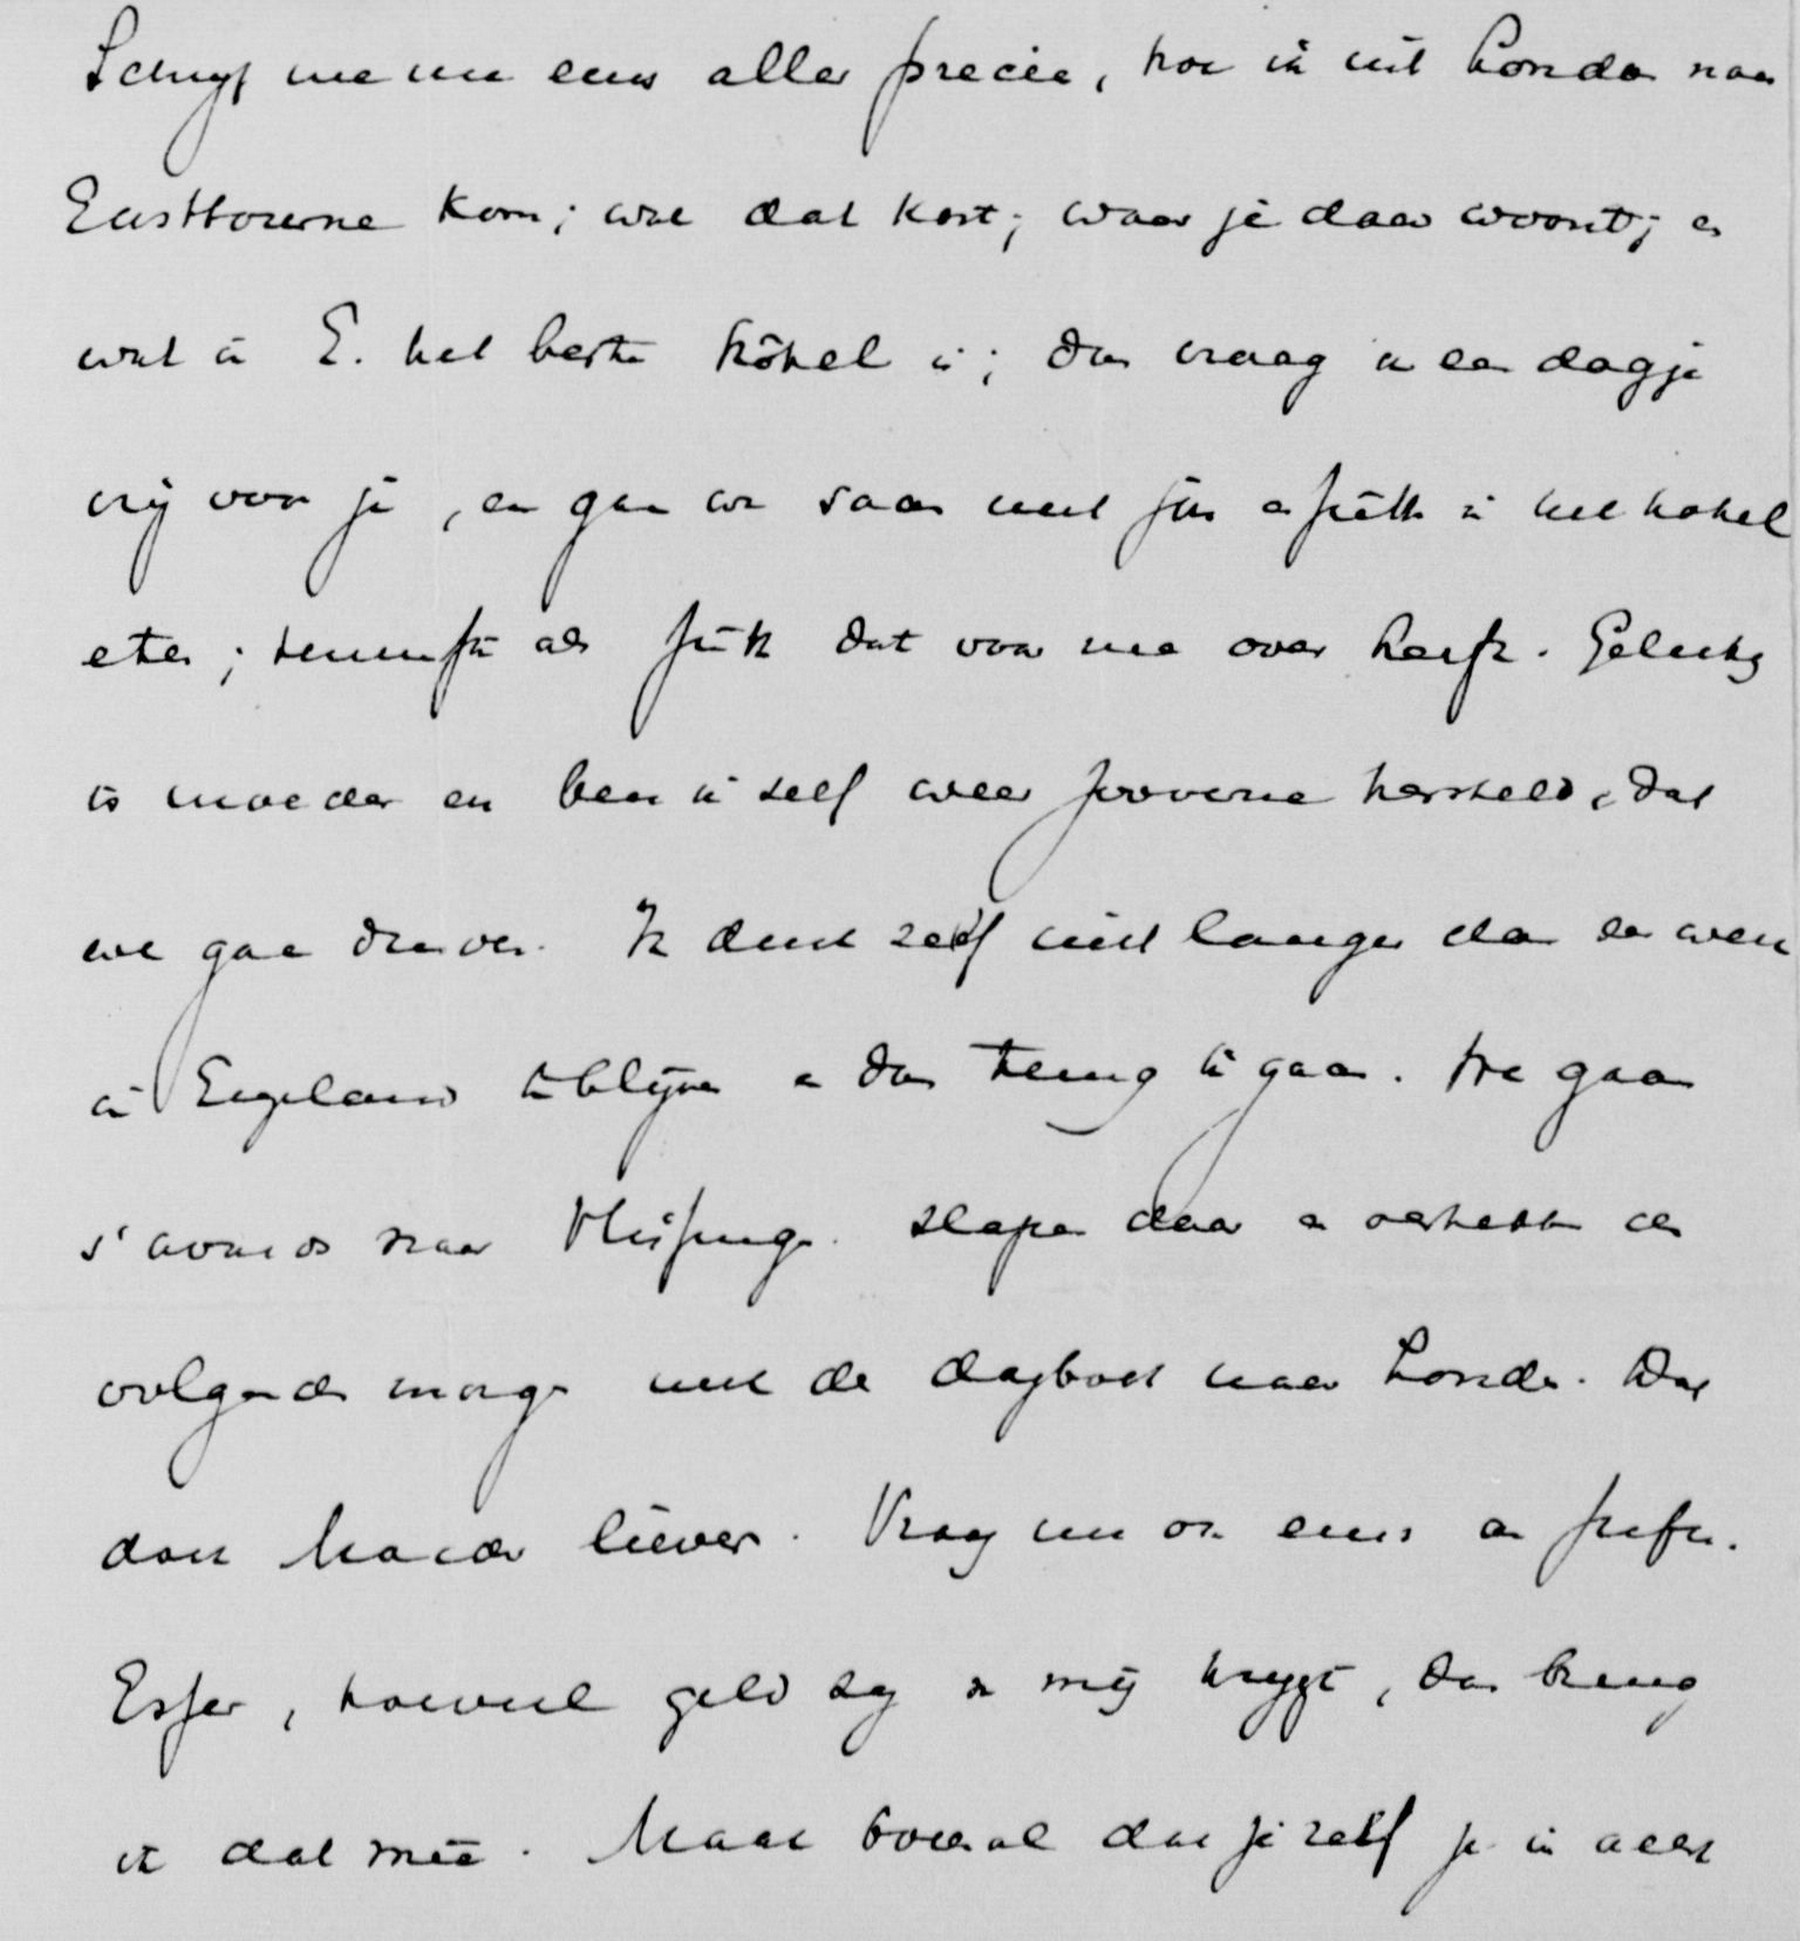 Schrijf me nu eens aller precies, hoe ik uit Londen naar
Eastbourne kom; wat dat kost; waar je daar woont; en
wat in E. het beste hôtel is; dan vraag ik een dagje
vrij voor je, en gaan we saam met en in het hotel
eten; tenminste als dat voor me over heeft. Gelukkig
is moeder en ben ik zelf weer hersteld, dat
we gaan. Ik denk zelf niet langer dan een week
in Engeland te blijven en dan terug te gaan. We gaan
s'avonds naar Vlissingen. slapen daar en den
volgenden morgen met de dagboot naar Londen. Dat
doet Moeder liever. Vraag nu ook eens aan
Esser, hoeveel geld zij van mij krijgt, dan breng
ik dat mee. Maak vooral dat je zelf je in acht